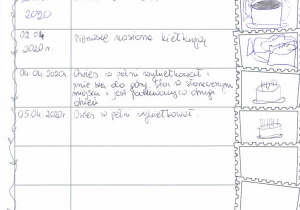 2020
02.04
2020r.
Pierwsze nasiona kiełkują
04.04.2020r.
Owies w pełni wykiełkował i
pnie się do góry. Stoi w słonecznym
miejscu i jest podlewany co drugi
dzień
05.04.2020r.
Owies w pełni wykiełkował.